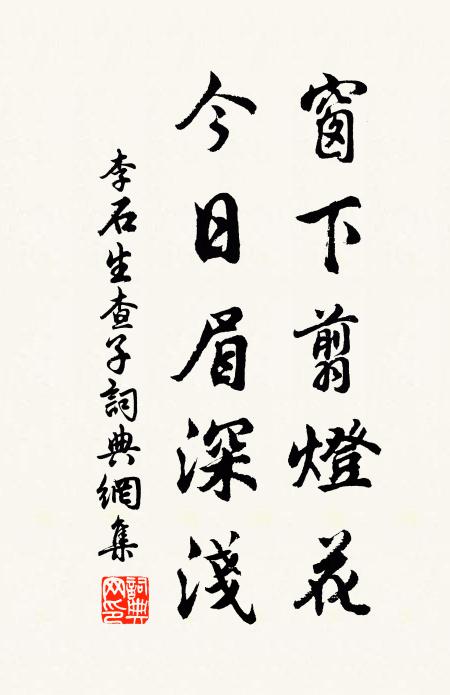 窗下剪燈花
今日眉深淺
李石生查子詞典網集
詞典网印